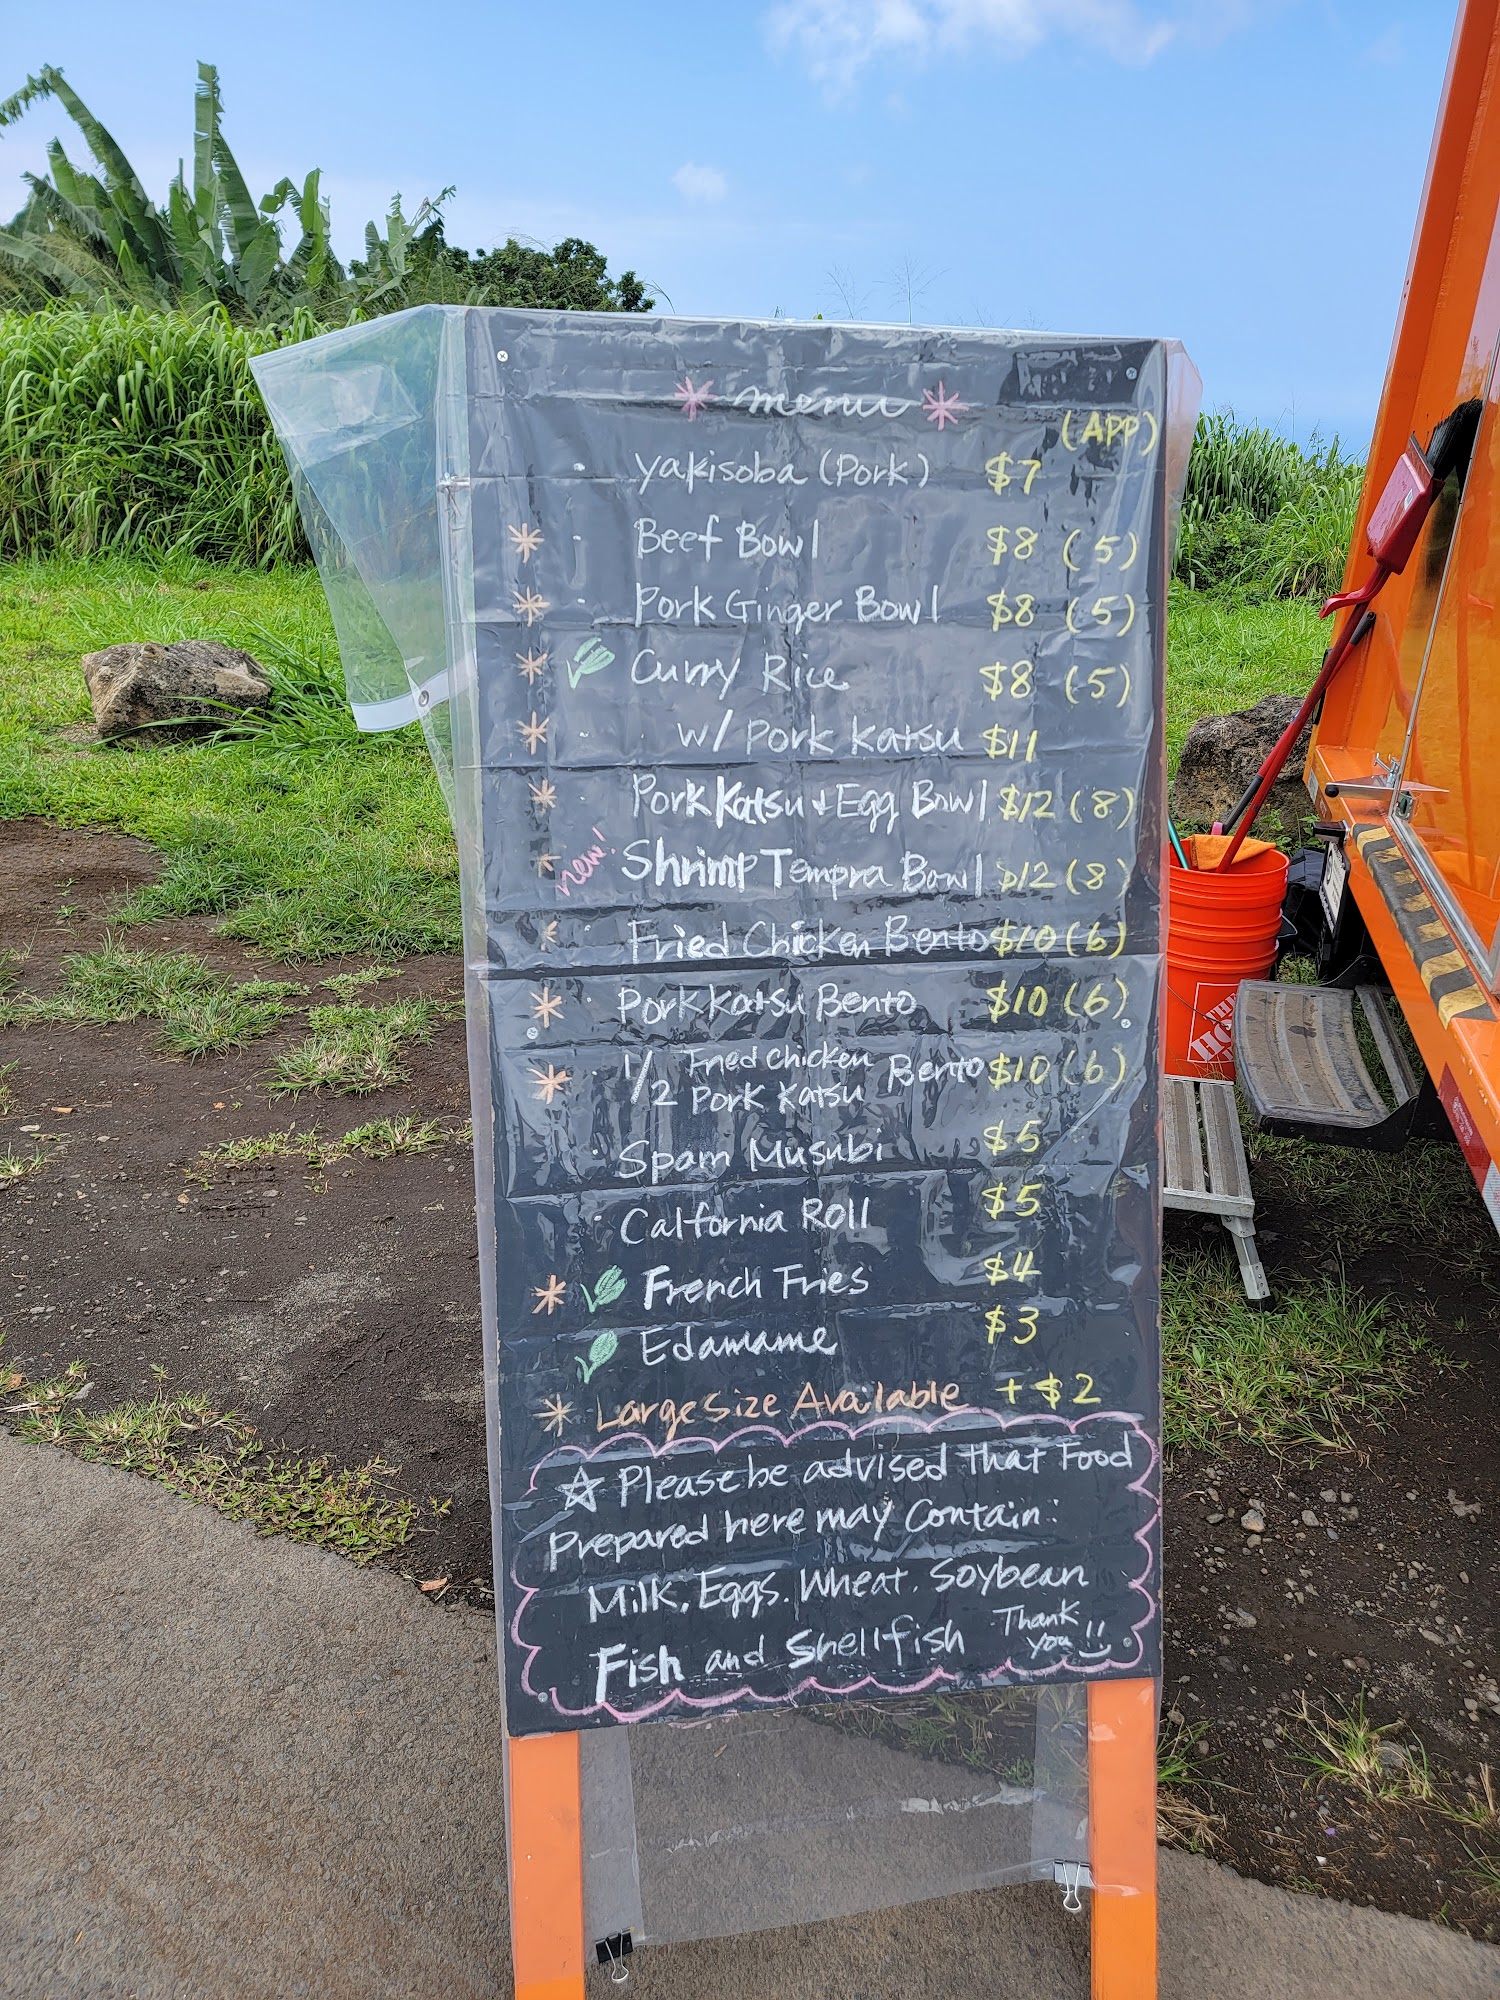 * menu *
(APP)
· Yakisoba (Pork) $7
* · Beef Bowl $8 (5)
* · Pork Ginger Bowl $8 (5)
* Curry Rice $8 (5)
* · w/ Pork Katsu $11
* · Pork Katsu + Egg Bowl $12 (8)
* new! Shrimp Tempra Bowl $12 (8)
* · Fried Chicken Bento $10 (6)
* · Pork Katsu Bento $10 (6)
* · 1/2 Fried Chicken Bento $10 (6)
Pork Katsu
· Spam Musubi $5
· Calfornia Roll $5
* French Fries $4
Edamame $3
* Large Size Available + $2
☆ Please be advised that Food
Prepared here may Contain:
Milk, Eggs. Wheat. Soybean
Fish and Shellfish Thank
you
THE
HO